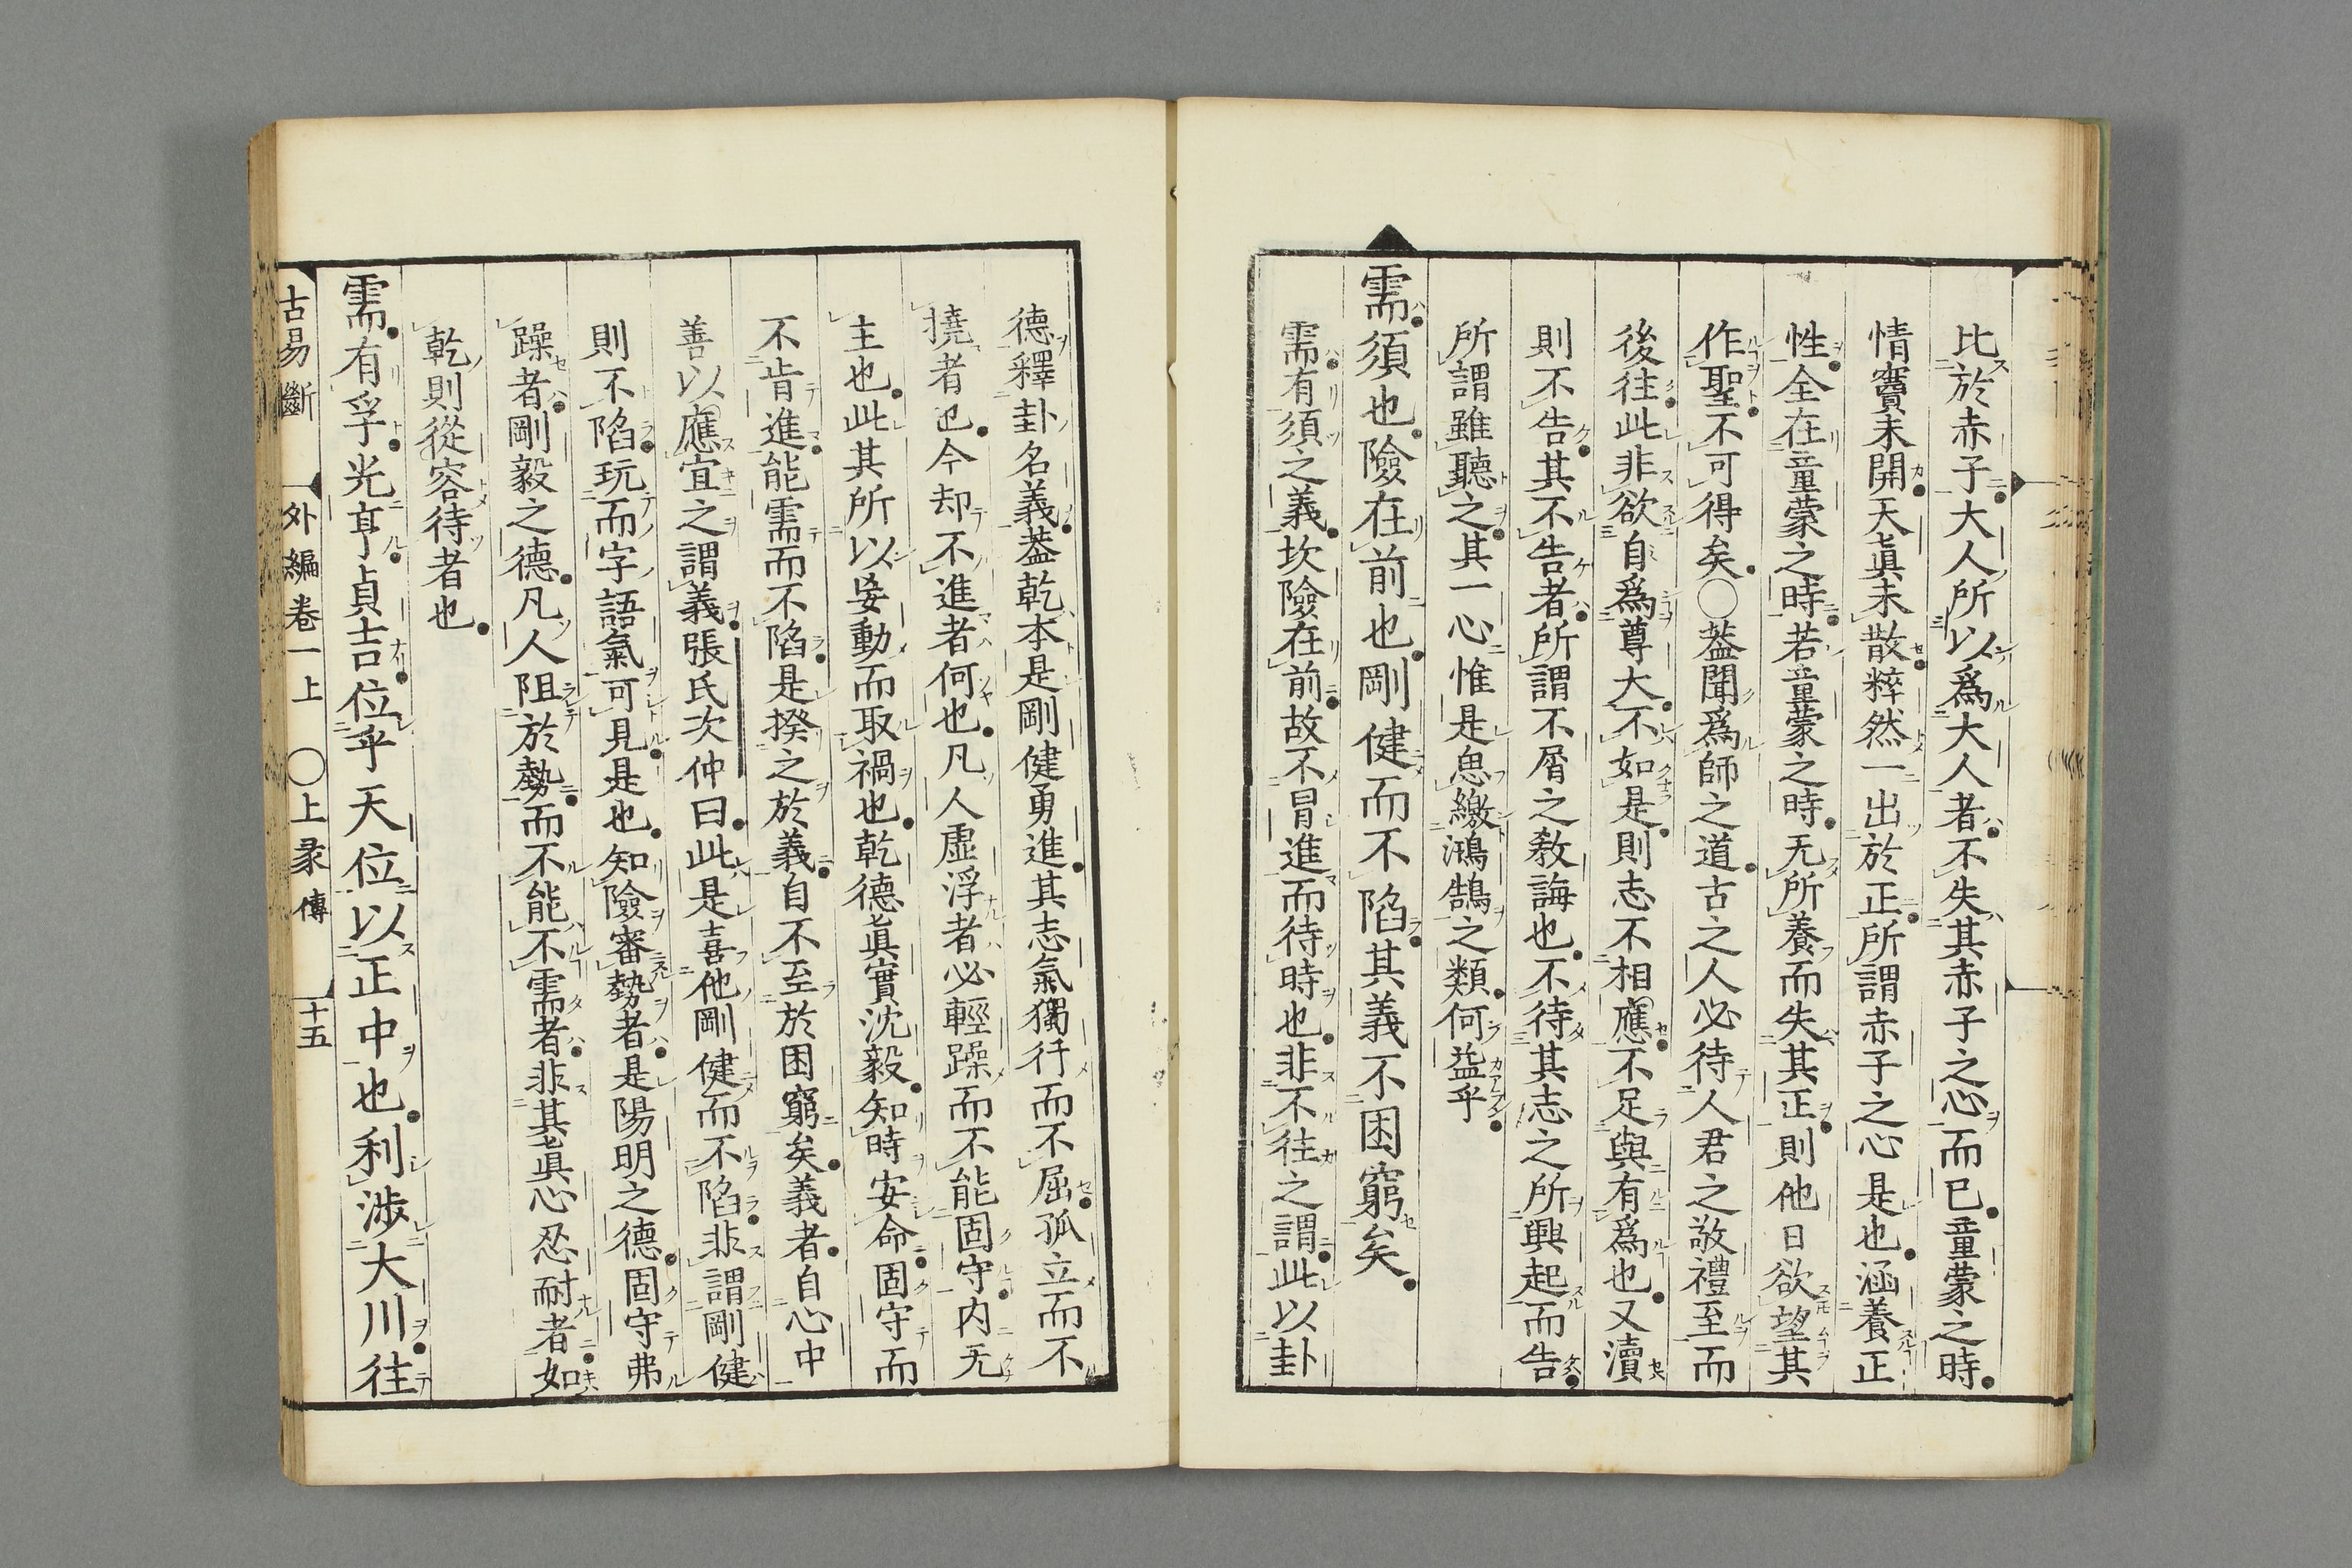 比於赤子大人所以爲大人者不失其赤子之心而已童蒙之時
情竇未開天眞未散粹然一出於正所謂赤子之心是也涵養正
性全在童蒙之時若童蒙之時无所養而失其正則他日欲望其
作聖不可得矣○葢聞爲師之道古之人必待人君之敬禮至而
後往此非欲自爲尊大不如是則志不相應不足與有爲也又瀆
則不告其不告者所謂不屑之敎誨也不待其志之所興起而告
所謂雖聽之其一心惟是思繳鴻鵠之類何益乎
需須也險在前也剛健而不陷其義不困窮矣
需有須之義坎險在前故不冒進而待時也非不往之謂此以卦
德釋卦名義葢乾本是剛健勇進其志氣獨行而不屈孤立而不
撓者也今却不進者何也凡人虛浮者必輕躁而不能固守内无
主也此其所以妄動而取禍也乾德眞實沈毅知時安命固守而
不肯進能需而不陷是揆之於義自不至於困窮矣義者自心中
善以應宜之謂義張氏次仲曰此是喜他剛健而不陷非謂剛健
則不陷玩而字語氣可見是也知險審勢者是陽明之德固守弗
躁者剛毅之德凡人阻於勢而不能不需者非其眞心忍耐者如
乾則從容待者也
需有孚光亨貞吉位乎天位以正中也利涉大川往
古易斷 外編卷一上 ○上彖傳 十五